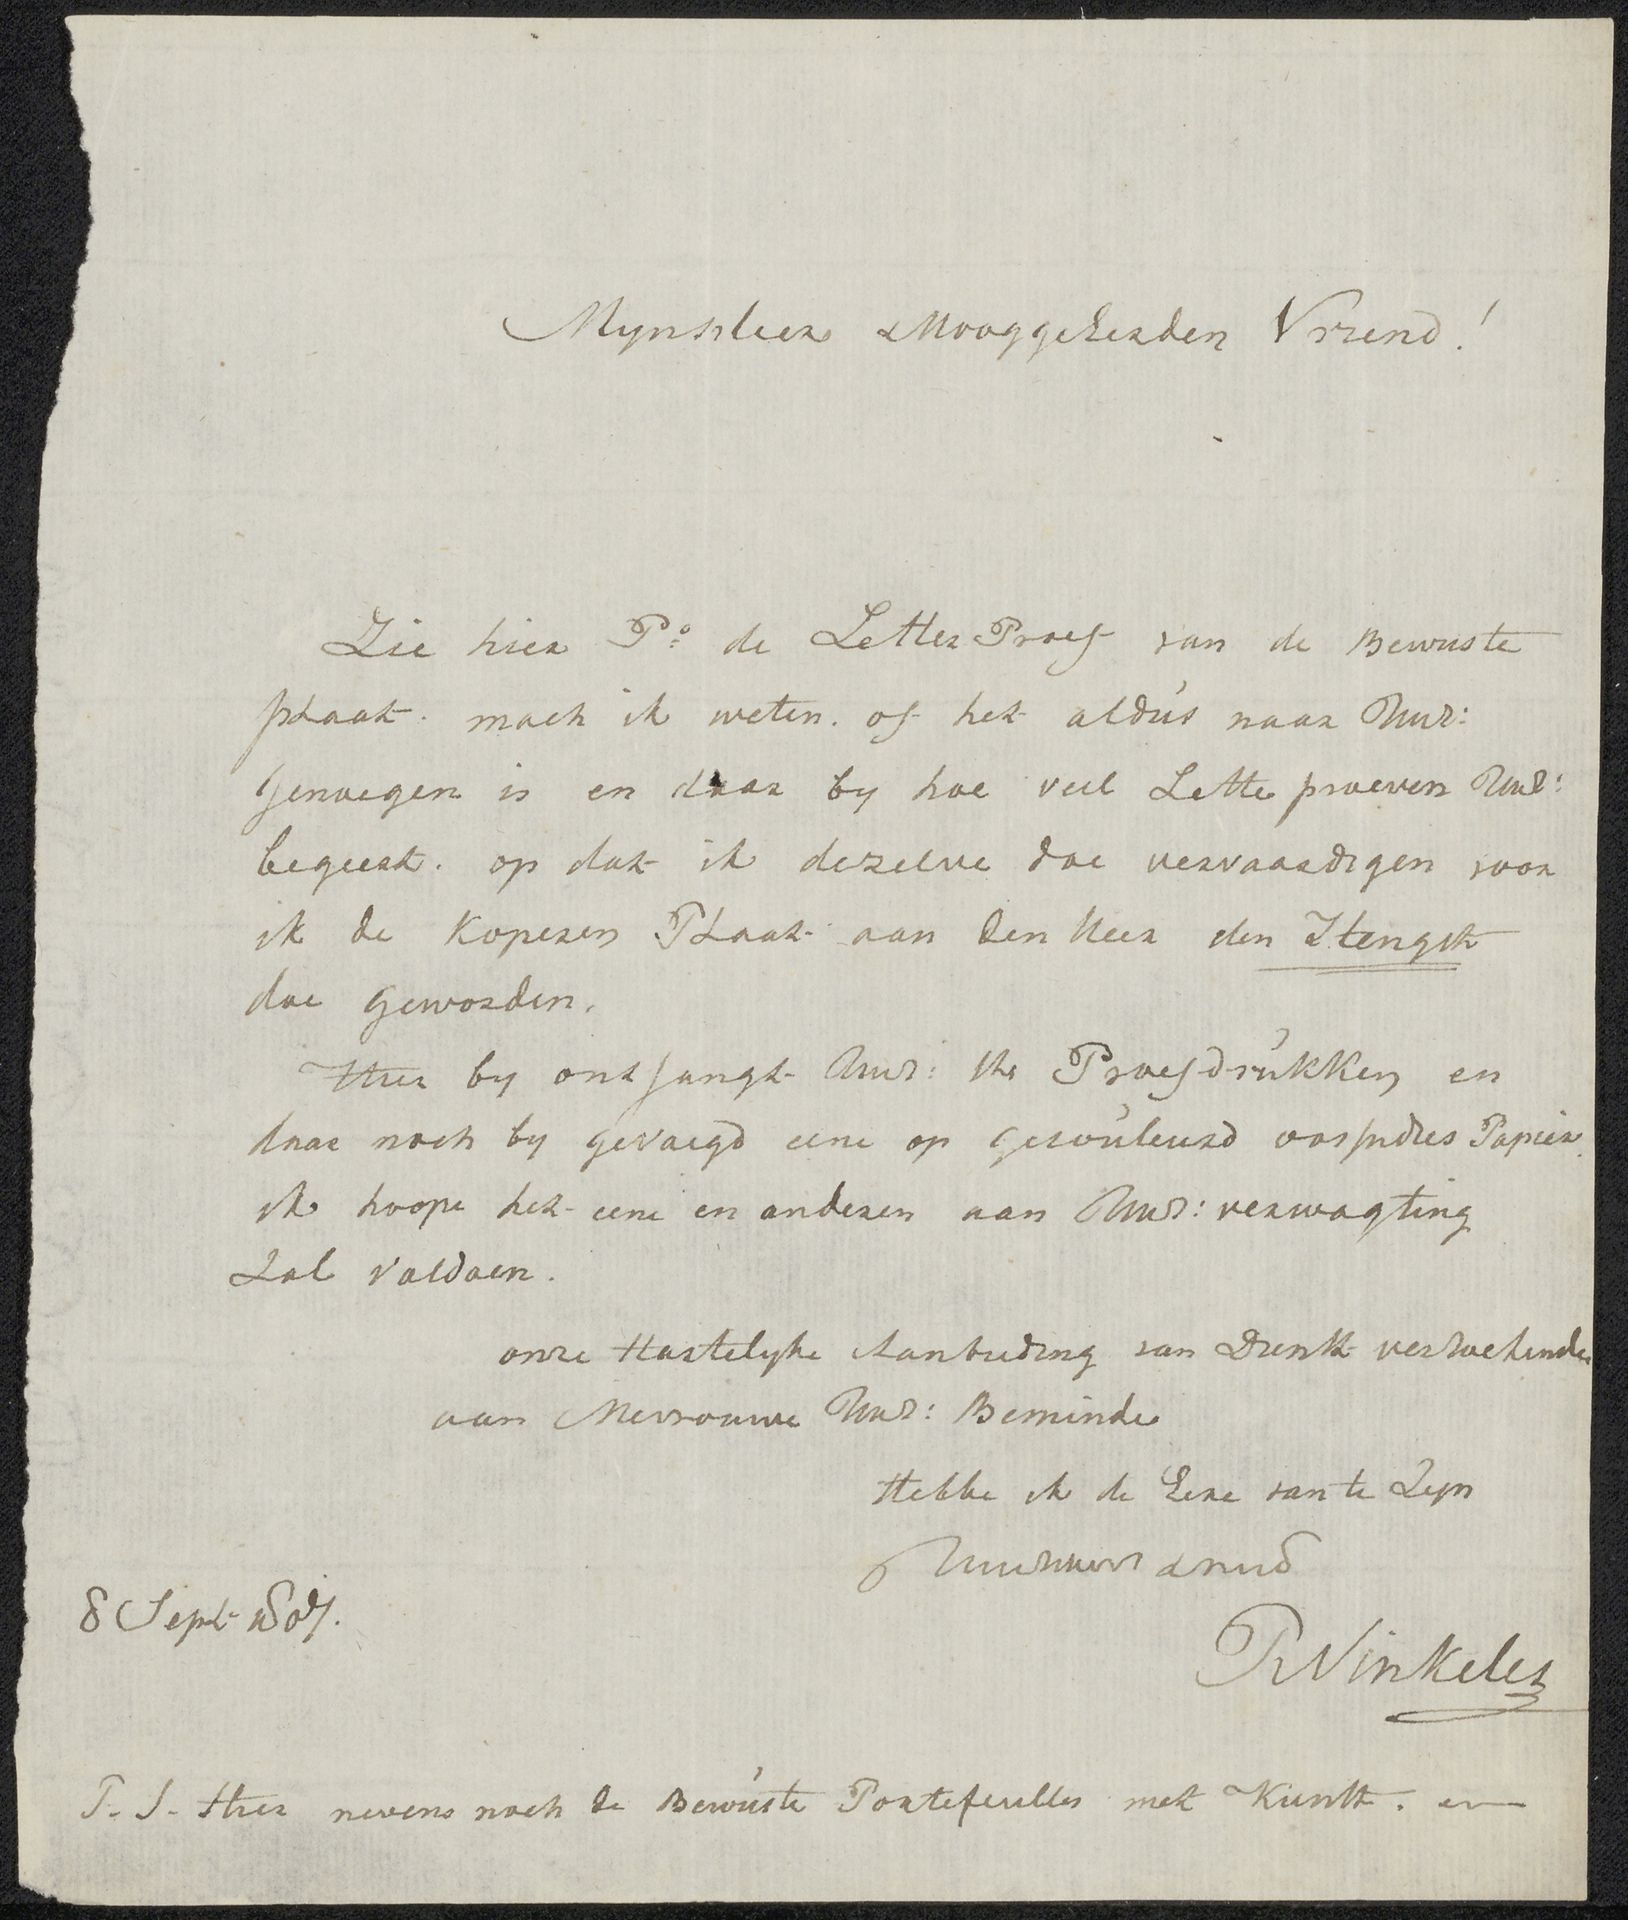 Mynheer & Hooggeeerden Vriend!
Zie hier Po: de Letter Proef van de Bewuste
plaat. mach ik weten. of het aldús naar Uwd:
genoegen is en daar by hoe veel Lette proeven Uwd:
begeert. op dat ik dezelve doe vervaardigen voor
ik de Koperen Plaat aan den Heer den Hengst
doe geworden.
Hier by ontfangt Uwd: the Proefdrúkken en
daar noch by gevoegd eene op gecoúleurd Papier
ik hoope het eene en anderen aan Uwd: verwagting
Zal voldoen.
onze Hartelyke Aanbieding van Dienst verzoekende
aan Mevrouwe Uwd: Beminde
Hebbe ik de Eere van te Zyn
8 Sept 1807.
RVinkeles
P. S. Hier nevens noch de Bewúste Portefeulles met Kunst. en